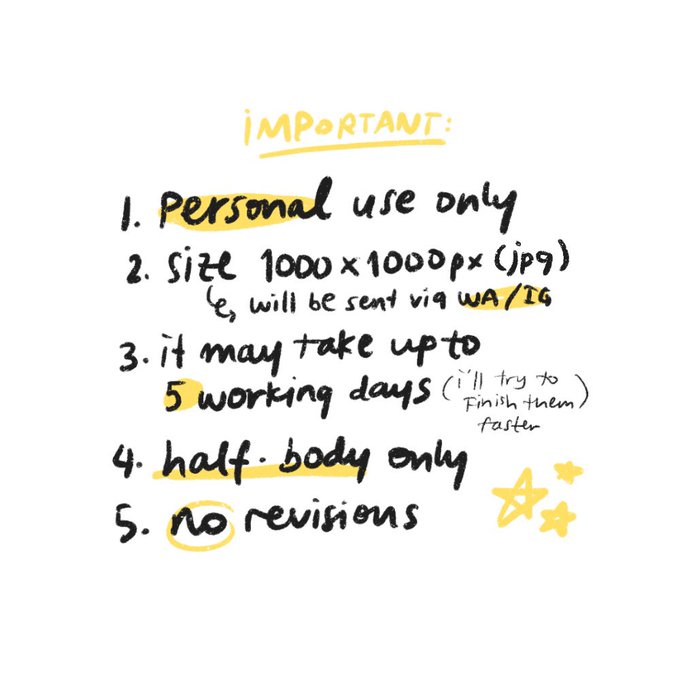 iMPORTANT:
1. personal use only
2. size 1000 x 1000 px (jpg)
will be sent via WA/IG
3. it may take up to
5 working days (i'll try to
Finish them
faster)
4. half-body only
5. no revisions